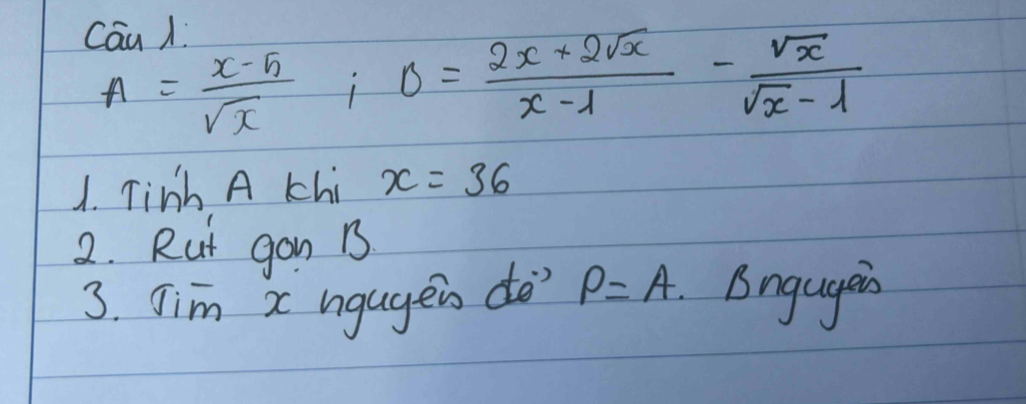 Câu 1:
A = \frac{x-5}{\sqrt{x}} ; B = \frac{2x+2\sqrt{x}}{x-1} - \frac{\sqrt{x}}{\sqrt{x}-1}
1. Tính A khi x = 36
2. Rút gọn B.
3. Tìm x nguyên để P = A. B nguyên